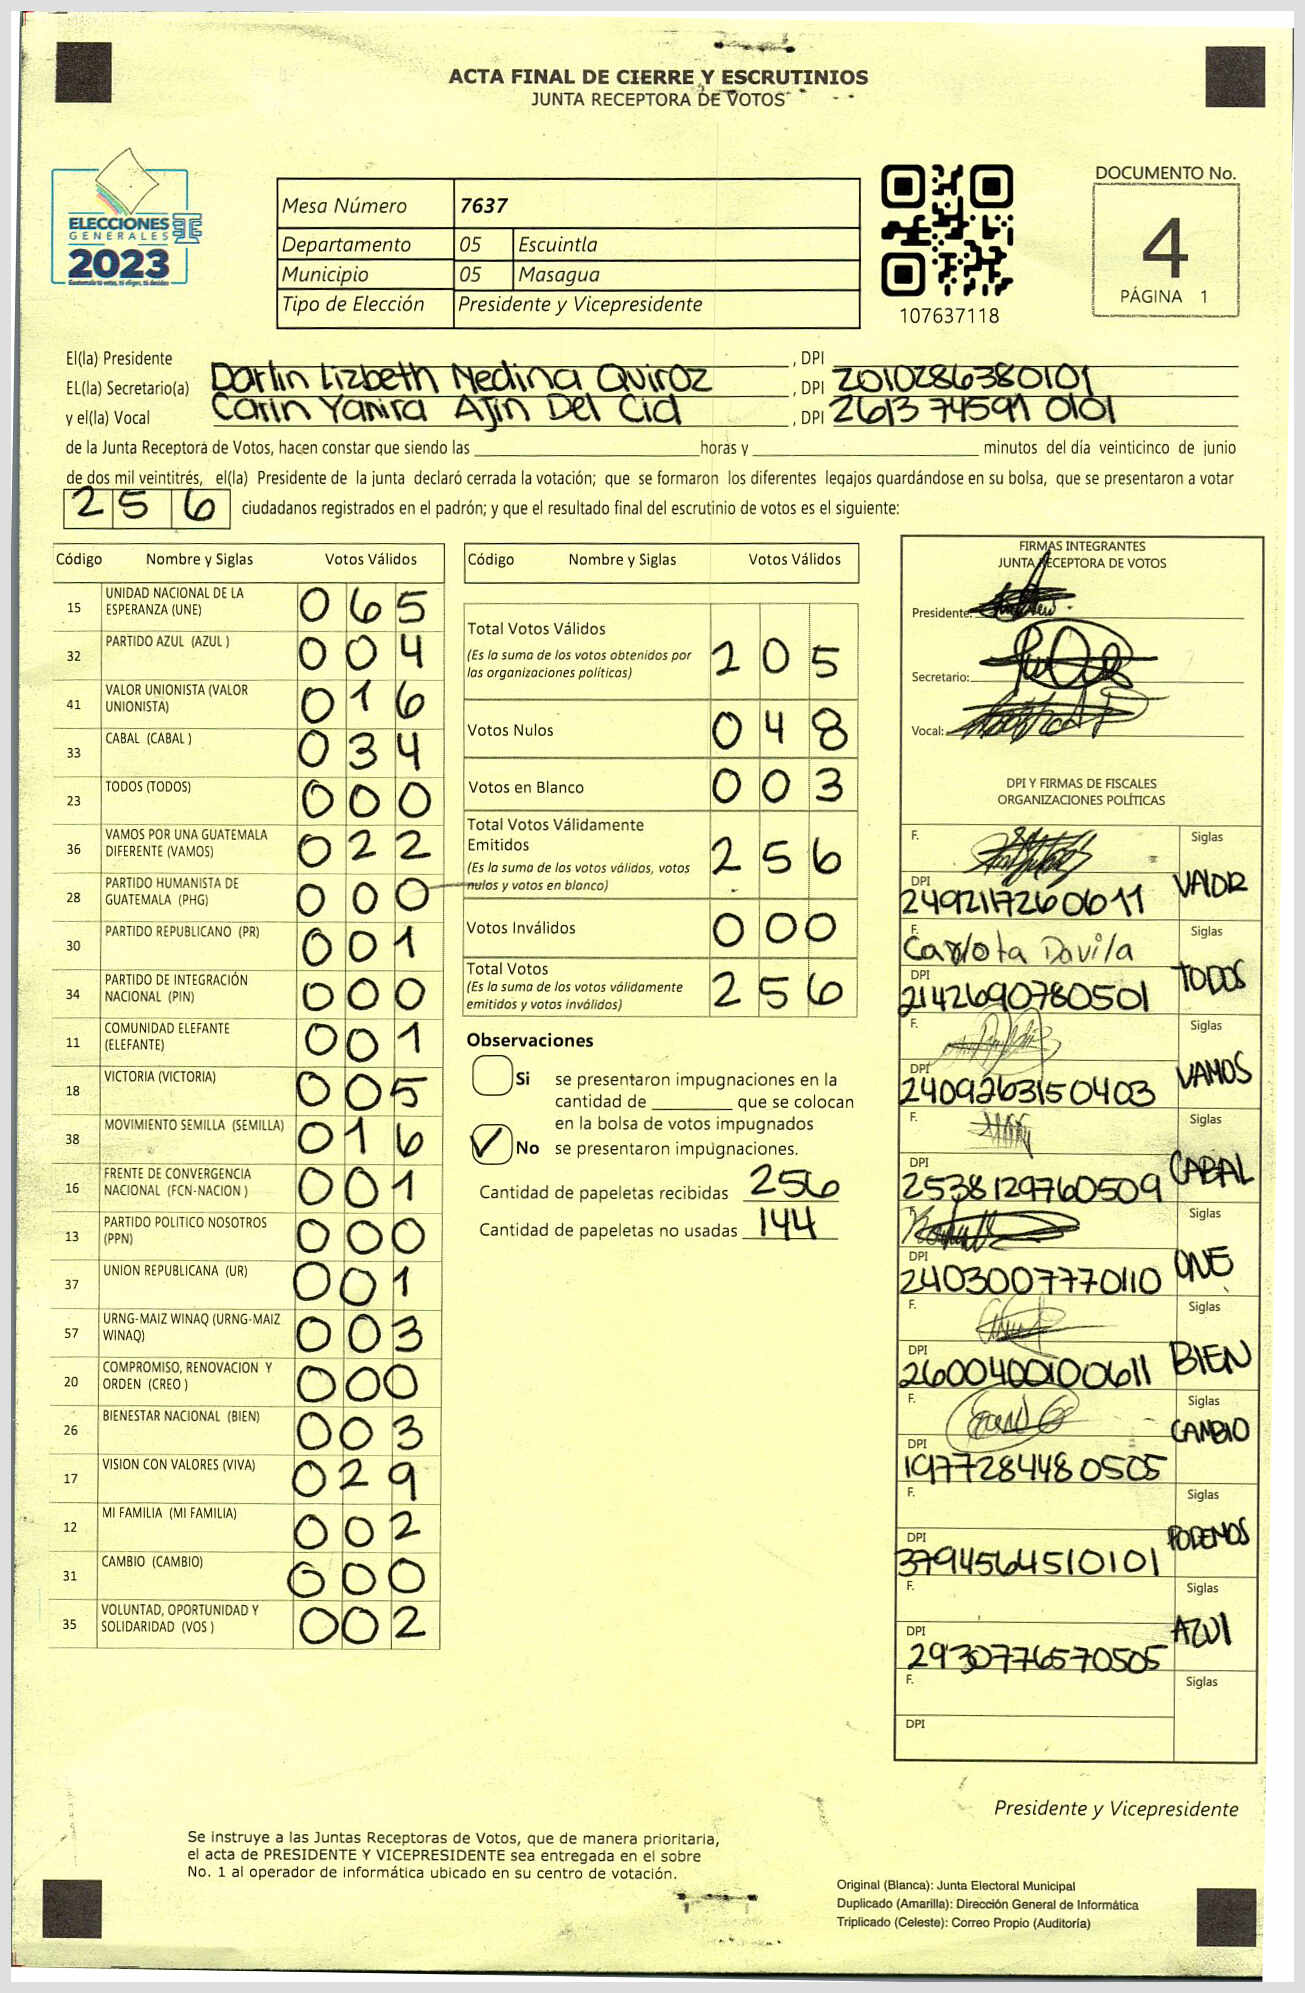 ACTA FINAL DE CIERRE Y ESCRUTINIOS
JUNTA RECEPTORA DE VOTOS
ELECCIONES
GENERALES
2023
Guatemala tú votas, tú eliges, tú decides
Mesa Número 7637
Departamento 05 Escuintla
Municipio 05 Masagua
Tipo de Elección Presidente y Vicepresidente
107637118
DOCUMENTO No.
4
PÁGINA 1
El(la) Presidente , DPI
EL(la) Secretario(a) Darlin Lizbeth Medina Quiroz , DPI 2010286380101
y el(la) Vocal Carin Yanira Ajin Del Cid , DPI 2613 74591 0101
de la Junta Receptora de Votos, hacen constar que siendo las horas y minutos del día veinticinco de junio
de dos mil veintitrés, el(la) Presidente de la junta declaró cerrada la votación; que se formaron los diferentes legajos guardándose en su bolsa, que se presentaron a votar
256 ciudadanos registrados en el padrón; y que el resultado final del escrutinio de votos es el siguiente:
Código Nombre y Siglas Votos Válidos
15 UNIDAD NACIONAL DE LA ESPERANZA (UNE) 065
32 PARTIDO AZUL (AZUL ) 004
41 VALOR UNIONISTA (VALOR UNIONISTA) 016
33 CABAL (CABAL ) 034
23 TODOS (TODOS) 000
36 VAMOS POR UNA GUATEMALA DIFERENTE (VAMOS) 022
28 PARTIDO HUMANISTA DE GUATEMALA (PHG) 000
30 PARTIDO REPUBLICANO (PR) 001
34 PARTIDO DE INTEGRACIÓN NACIONAL (PIN) 000
11 COMUNIDAD ELEFANTE (ELEFANTE) 001
18 VICTORIA (VICTORIA) 005
38 MOVIMIENTO SEMILLA (SEMILLA) 016
16 FRENTE DE CONVERGENCIA NACIONAL (FCN-NACION ) 001
13 PARTIDO POLITICO NOSOTROS (PPN) 000
37 UNION REPUBLICANA (UR) 001
57 URNG-MAIZ WINAQ (URNG-MAIZ WINAQ) 003
20 COMPROMISO, RENOVACION Y ORDEN (CREO ) 000
26 BIENESTAR NACIONAL (BIEN) 003
17 VISION CON VALORES (VIVA) 029
12 MI FAMILIA (MI FAMILIA) 002
31 CAMBIO (CAMBIO) 000
35 VOLUNTAD, OPORTUNIDAD Y SOLIDARIDAD (VOS ) 002
Código Nombre y Siglas Votos Válidos
Total Votos Válidos 205
(Es la suma de los votos obtenidos por
las organizaciones políticas)
Votos Nulos 048
Votos en Blanco 003
Total Votos Válidamente
Emitidos 256
(Es la suma de los votos válidos, votos
nulos y votos en blanco)
Votos Inválidos 000
Total Votos 256
(Es la suma de los votos válidamente
emitidos y votos inválidos)
Observaciones
Si se presentaron impugnaciones en la
cantidad de que se colocan
en la bolsa de votos impugnados
✓ No se presentaron impugnaciones.
Cantidad de papeletas recibidas 256
Cantidad de papeletas no usadas 144
FIRMAS INTEGRANTES
JUNTA RECEPTORA DE VOTOS
Presidente:
Secretario:
Vocal:
DPI Y FIRMAS DE FISCALES
ORGANIZACIONES POLÍTICAS
F. Siglas
DPI VALOR
2492117260611
F. Carlota Davila Siglas
DPI TODOS
2142690780501
F. Siglas
DPI VAMOS
2409263150403
F. Siglas
DPI CABAL
2538129760509
F. Siglas
DPI UNE
2403007770110
F. Siglas
DPI BIEN
2600400100611
F. Siglas
CAMBIO
DPI
1977284480505
F. Siglas
DPI PODEMOS
3794564510101
F. Siglas
DPI AZUL
2930776570505
F. Siglas
DPI
Presidente y Vicepresidente
Se instruye a las Juntas Receptoras de Votos, que de manera prioritaria,
el acta de PRESIDENTE Y VICEPRESIDENTE sea entregada en el sobre
No. 1 al operador de informática ubicado en su centro de votación.
Original (Blanca): Junta Electoral Municipal
Duplicado (Amarilla): Dirección General de Informática
Triplicado (Celeste): Correo Propio (Auditoría)